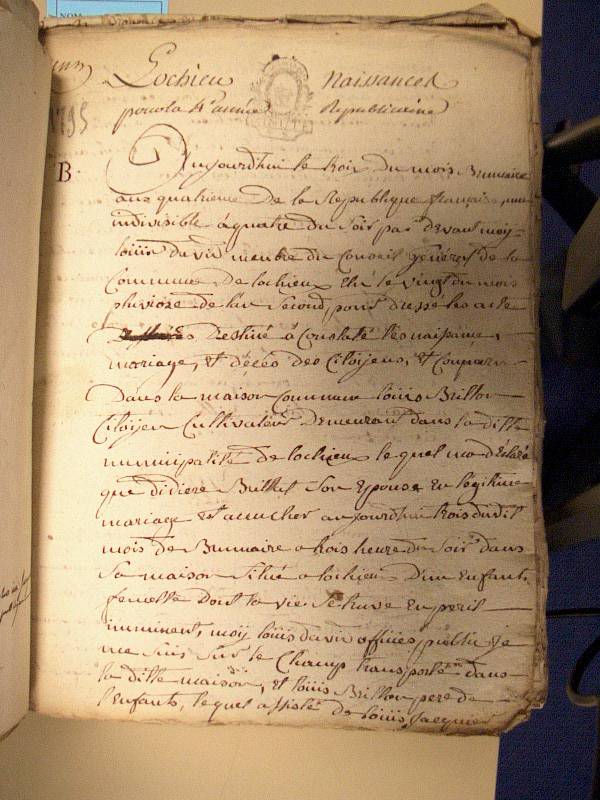 Lochieu Naissances
pour la 4e année Republicaine
1795
B
Aujourdhui le trois du mois Brumaire
ans quatrieme de la Republique française, une
indivisible à quatre du soir par devant moy
loüis david menbre du Conseil général de la
Commune de lochieux élû le vingt du mois
pluviose de l'an second, pour dressé les acte
destiné à Constaté les naissance,
mariage, et décés des Citoÿens, et Comparu
dans la maison Commune loüis Brillon
Citoÿen Cultivateur demeurant dans la ditte
municipalité de lochieux le quel ma déclaré
que didiere Billiet Son épouse en légitime
mariage et acucher aujourdhui trois dudit
mois de Brumaire a trois heure du Soir dans
Sa maison Situé a lochieu d'un Enfant
femelle dont la vie Se truve En peril
imminent, moÿ loüis david officier public je
me Suis Sur le Champ transporté dans
la ditte maison, et loüis Brillon pere de
l'enfants, lequel assisté de loüis Jacquier